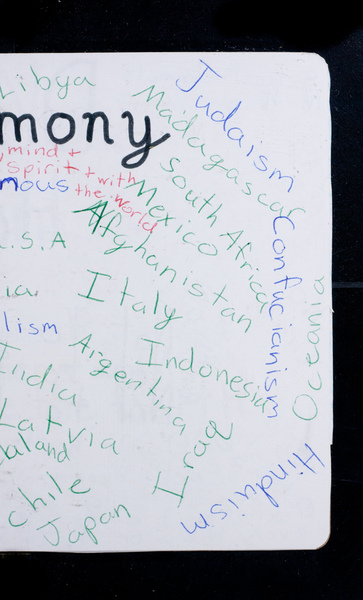 Libya
Judaism
Madagascar
mony
mind +
spirit + with
the world
mous
South Africa
Mexico
Afghanistan
.S.A
Confucianism
ia
Italy
Oceania
lism
Argentina
Indonesia
India
Latvia
aland
Iraq
Hinduism
Chile
Japan